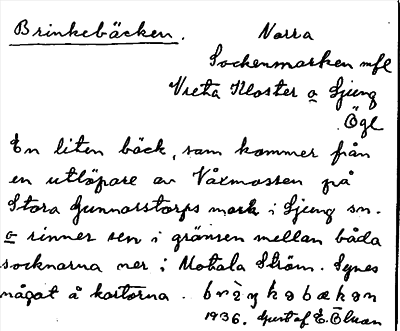 Brinkebäcken. Norra
Sockenmarken mfl
Vreta Kloster o Ljung
Ögl
En liten bäck, som kommer från
en utlöpare av Våxmossen på
Stora Gunnarstorps mark i Ljung sn.
o rinner sen i gränsen mellan båda
socknarna ner i Motala Ström. Synes
något å kartorna.
1936. Gustaf E. Olsson